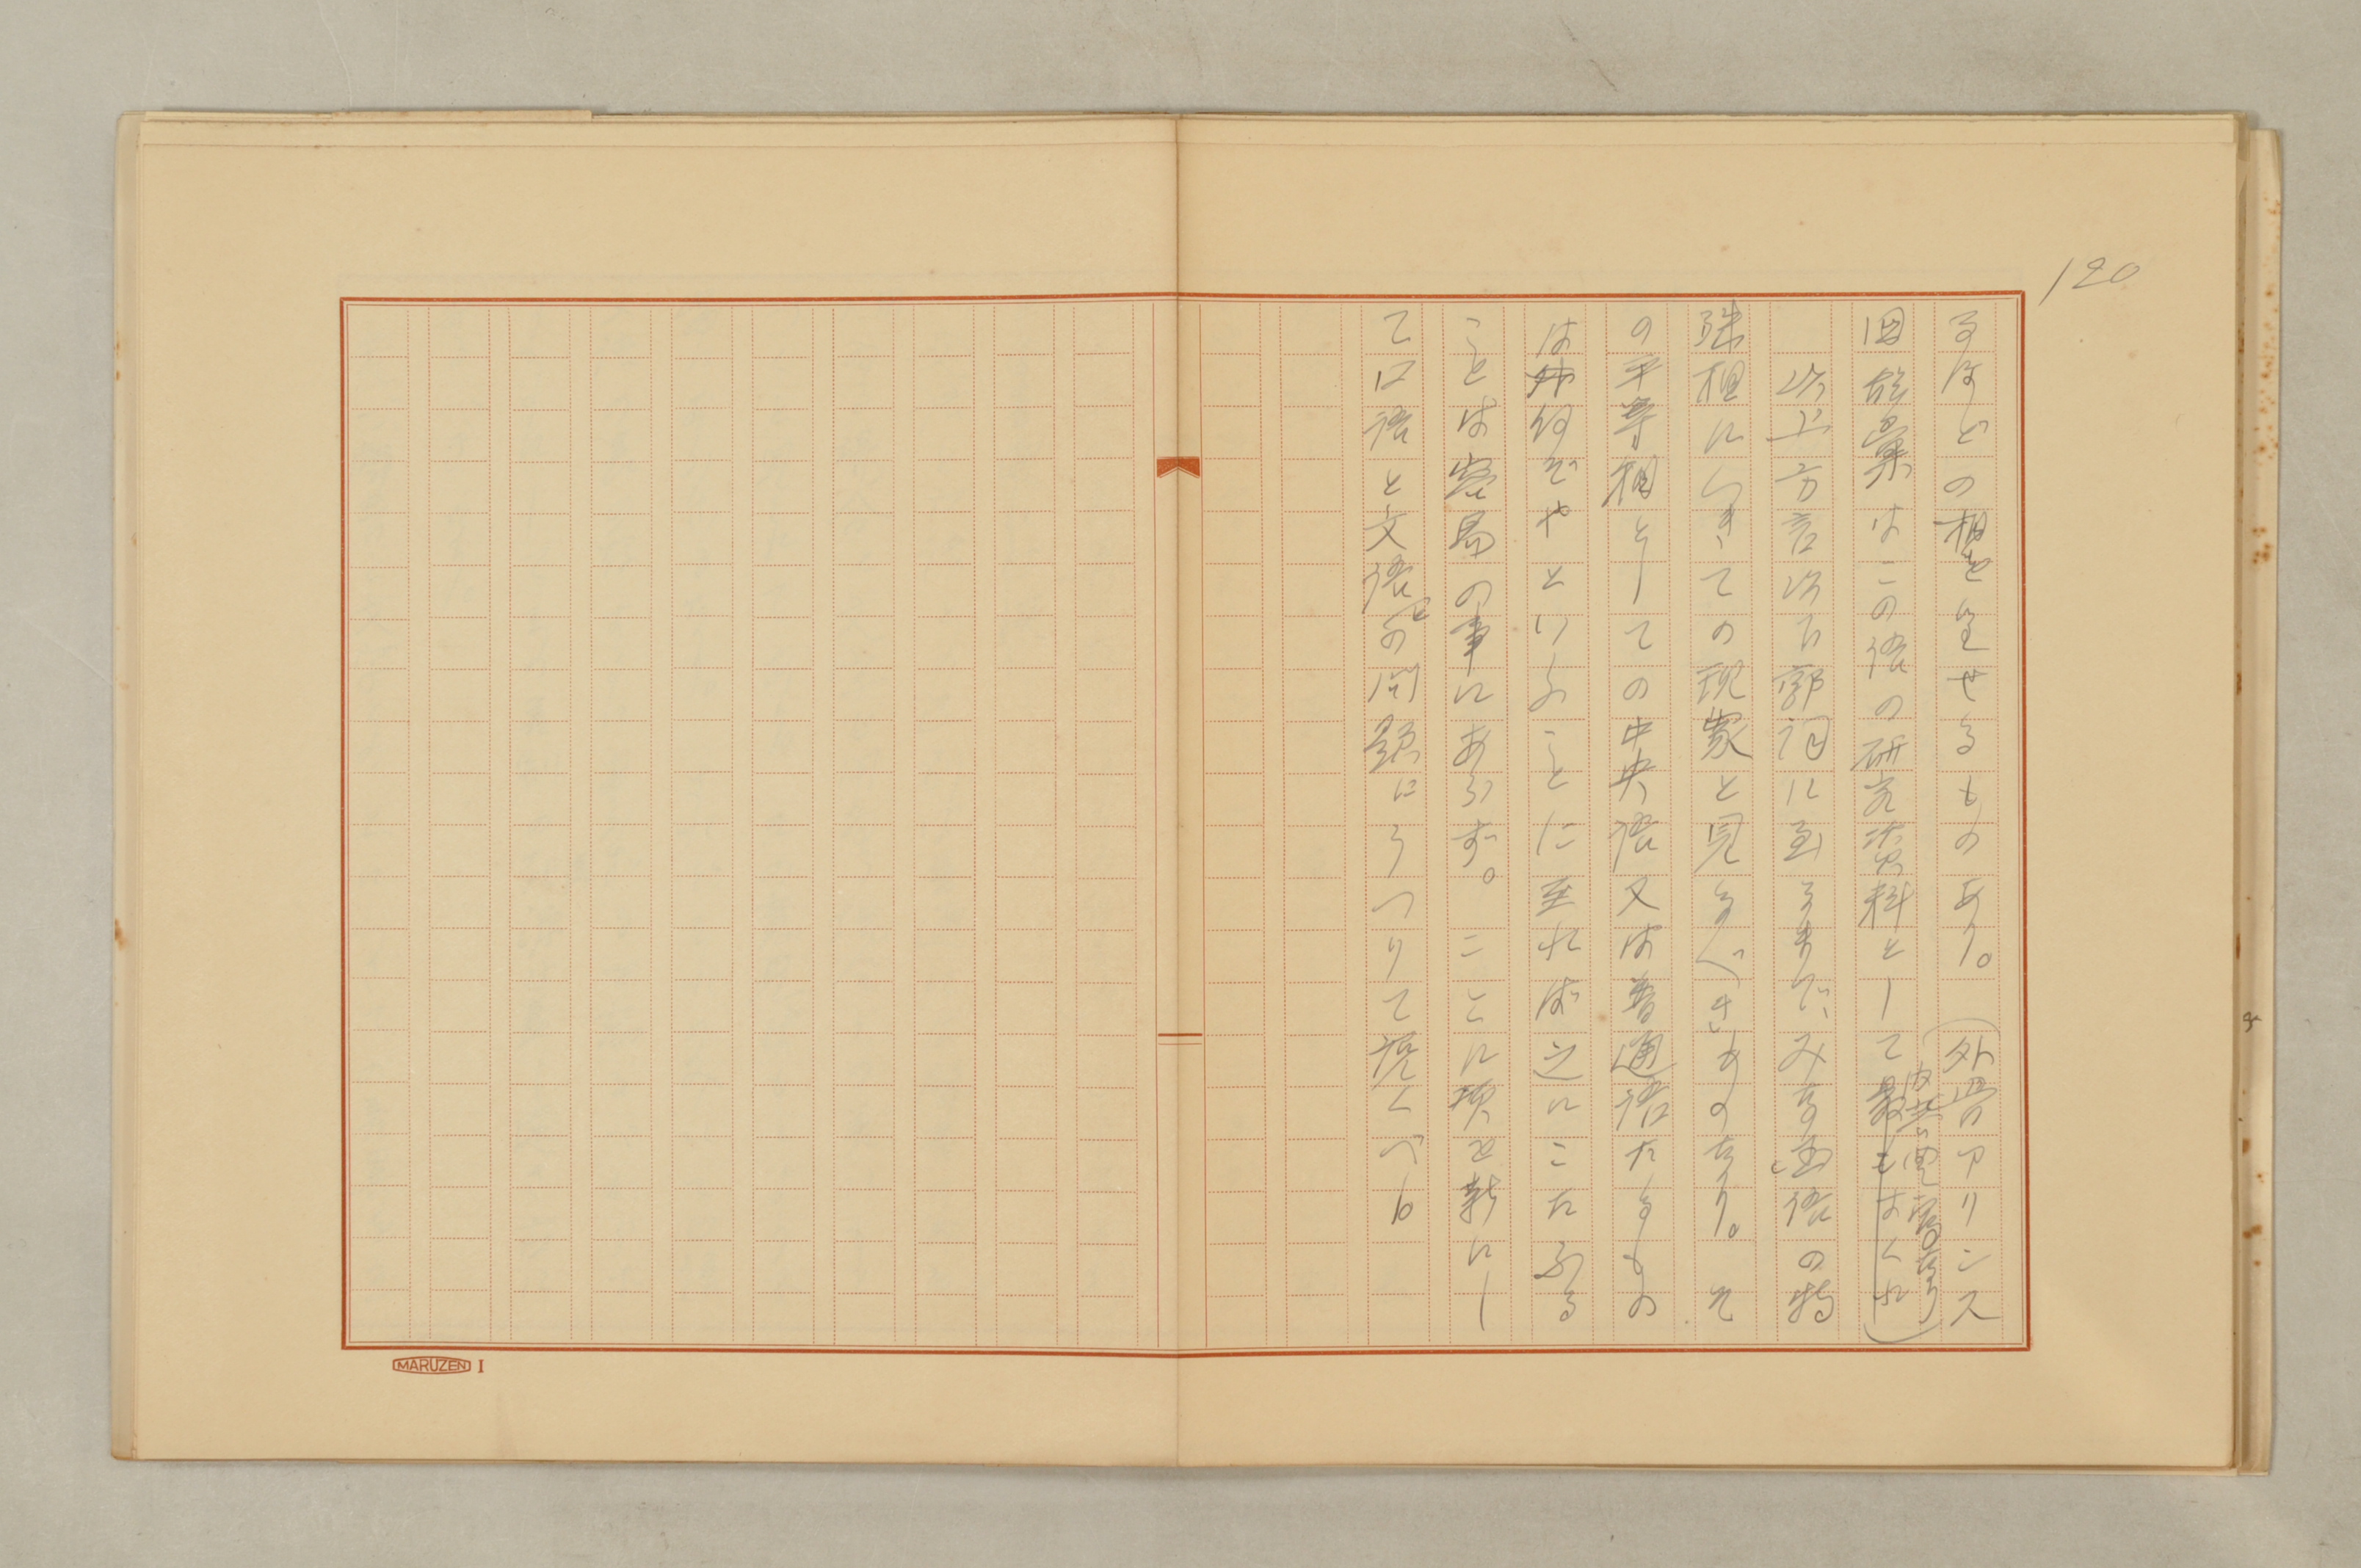 120
るなどの相を呈せるものあり。（外骨アリンス
国語彙はこの語の研究資料として
最もよく
以上方言以下郭詞に至るまで、みな国語の特
殊相につきての現象と見るべきものなり。そ
の平等相としての中央語又は普通語たるもの
は何ぞやといふことに至れば之にこたふる
ことは容易の事にあらず。ここに項を新にし
て口語と文語との問題にうつりて説くべし
MARUZEN I